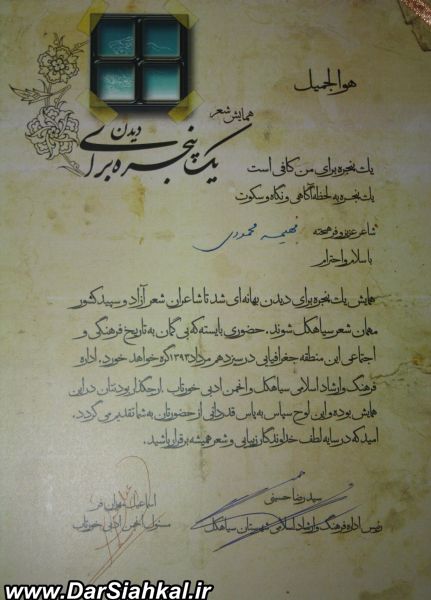 هوالجمیل
همایش شعر
یک پنجره برای دیدن
یک پنجره برای من کافی است
یک پنجره به لحظه آگاهی و نگاه و سکوت
شاعر عزیز و فرهیخته فهیمه محمودی
با سلام و احترام
همایش یک پنجره برای دیدن بهانه ای شد تا شاعران شعر آزاد و سپید کشور
مهمان شعر سیاهکل شوند. حضوری بایسته که بی گمان به تاریخ فرهنگی و
اجتماعی این منطقه جغرافیایی در سیزدهم مرداد ۱۳۹۳ گره خواهد خورد. اداره
فرهنگ و ارشاد اسلامی سیاهکل و انجمن ادبی خورتاب، ارجگذار بودنتان در این
همایش بوده و این لوح سپاس به پاس قدردانی از حضورتان به شما تقدیر می گردد.
امید که در سایه لطف خداوندگار زیبایی و شعر همیشه برقرار باشید.
سید رضا حسینی
رئیس اداره فرهنگ و ارشاد اسلامی شهرستان سیاهکل
اسماعیل مهران فر
مسئول انجمن ادبی خورتاب
www.DarSiahkal.ir